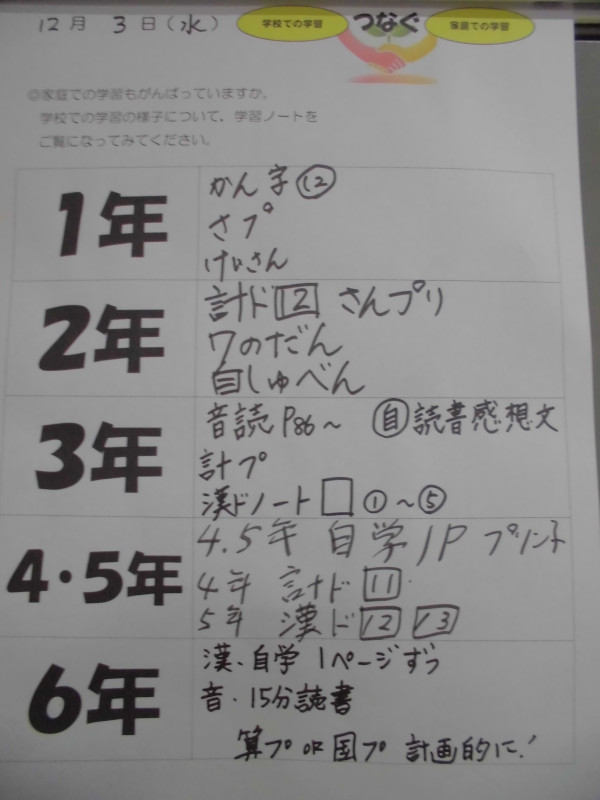 12月 3日(水)
学校での学習 つなぐ 家庭での学習
◎家庭での学習もがんばっていますか。
学校での学習の様子について、学習ノートを
ご覧になってみてください。
1年
かん字⑫
さプ
けいさん
2年
計ド12 さんプリ
7のだん
自しゅべん
3年
音読P86～ 自読書感想文
計プ
漢ドノート□①～⑤
4・5年
4.5年 自学1P プリント
4年 計ド11
5年 漢ド12 13
6年
漢、自学 1ページずつ
音・15分読書
算プor国プ 計画的に!